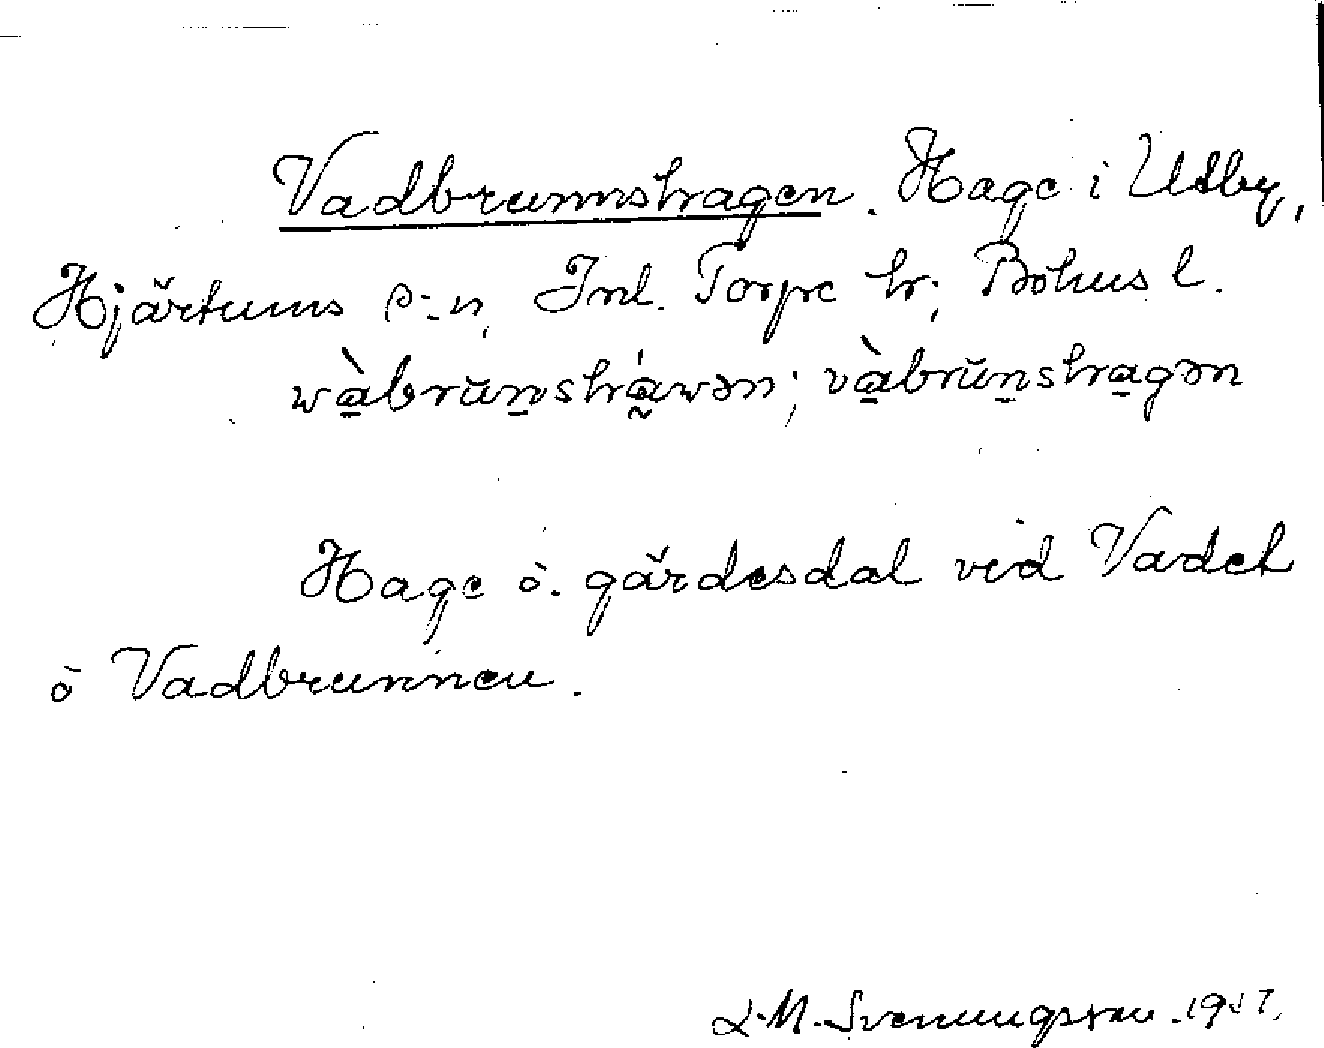 Vadbrunnshagen. Hage i Utby,
Hjärtums s:n, Inl. Torpe hr, Bohus l.
wàbrŭn̠shá̰wən; và̠brŭn̠shragən
Hage o. gärdesdal vid Vadet
o Vadbrunnen.
L. M. Svenungsson. 19